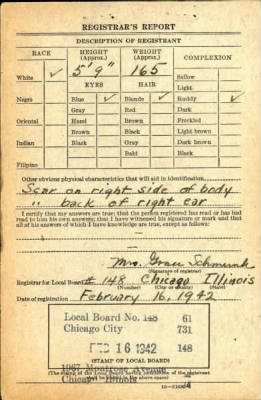 REGISTRAR'S REPORT
DESCRIPTION OF REGISTRANT
RACE HEIGHT (Approx.) WEIGHT (Approx.) COMPLEXION
5' 9" 165
White ✓ Sallow
EYES HAIR Light
Negro Blue ✓ Blonde ✓ Ruddy ✓
Gray Red Dark
Oriental Hazel Brown Freckled
Brown Black Light brown
Indian Black Gray Dark brown
Bald Black
Filipino
Other obvious physical characteristics that will aid in identification
Scar on right side of body
" back of right ear
I certify that my answers are true; that the person registered has read or has had
read to him his own answers; that I have witnessed his signature or mark and that
all of his answers of which I have knowledge are true, except as follows:
Mrs. Grace
(Signature of registrar)
Registrar for Local Board # 148 Chicago Illinois
(Number) (City or county) (State)
Date of registration February 16, 1942
Local Board No. 148 61
Chicago City 731
FEB 16 1942 148
(STAMP OF LOCAL BOARD)
1967 Montrose Avenue
Chicago Illinois